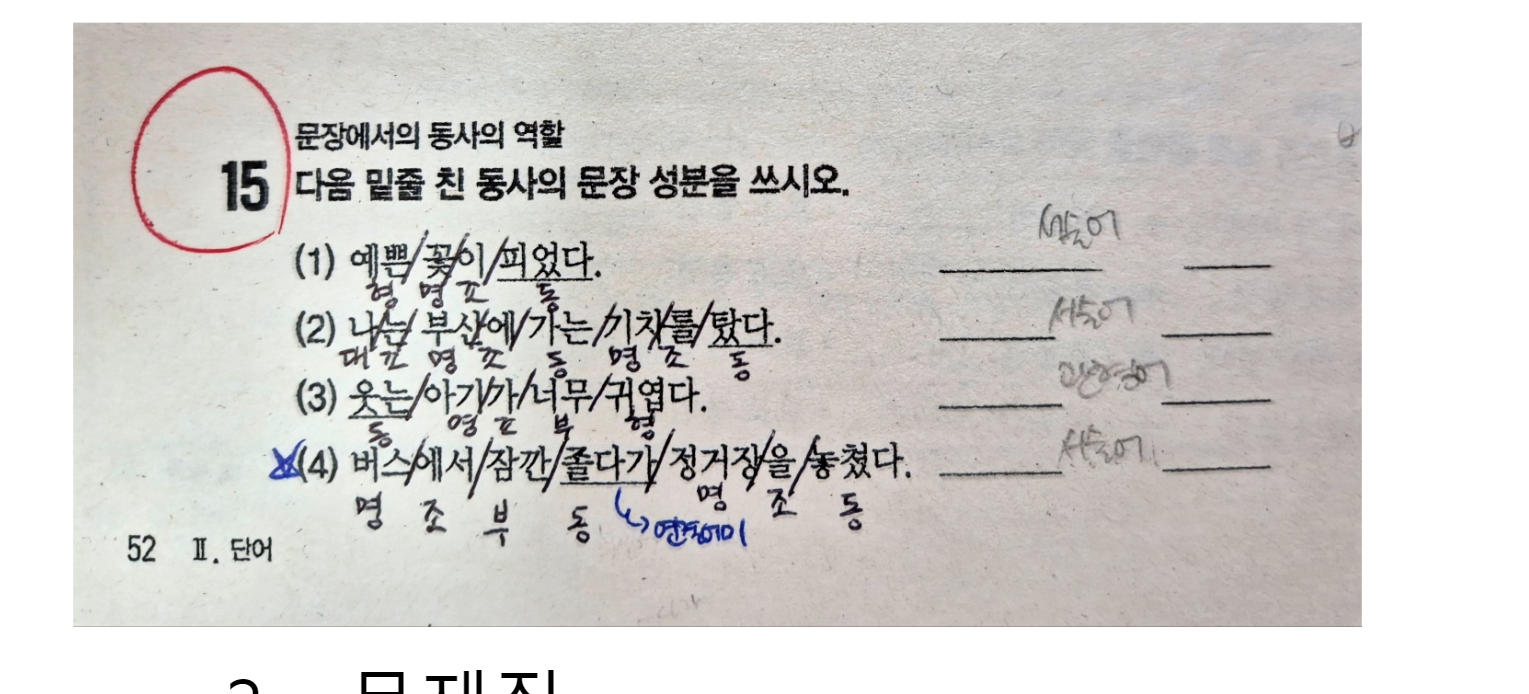 문장에서의 동사의 역할
15 다음 밑줄 친 동사의 문장 성분을 쓰시오.
(1) 예쁜/꽃/이/피었다. 서술어
형 명 조 동
(2) 나/는/부산/에/가는/기차/를/탔다. 서술어
대 조 명 조 동 명 조 동
(3) 웃는/아기/가/너무/귀엽다. 관형어
동 명 조 부 형
(4) 버스/에서/잠깐/졸다가/정거장/을/놓쳤다. 서술어
명 조 부 동 명 조 동
연결어미
52 Ⅱ. 단어